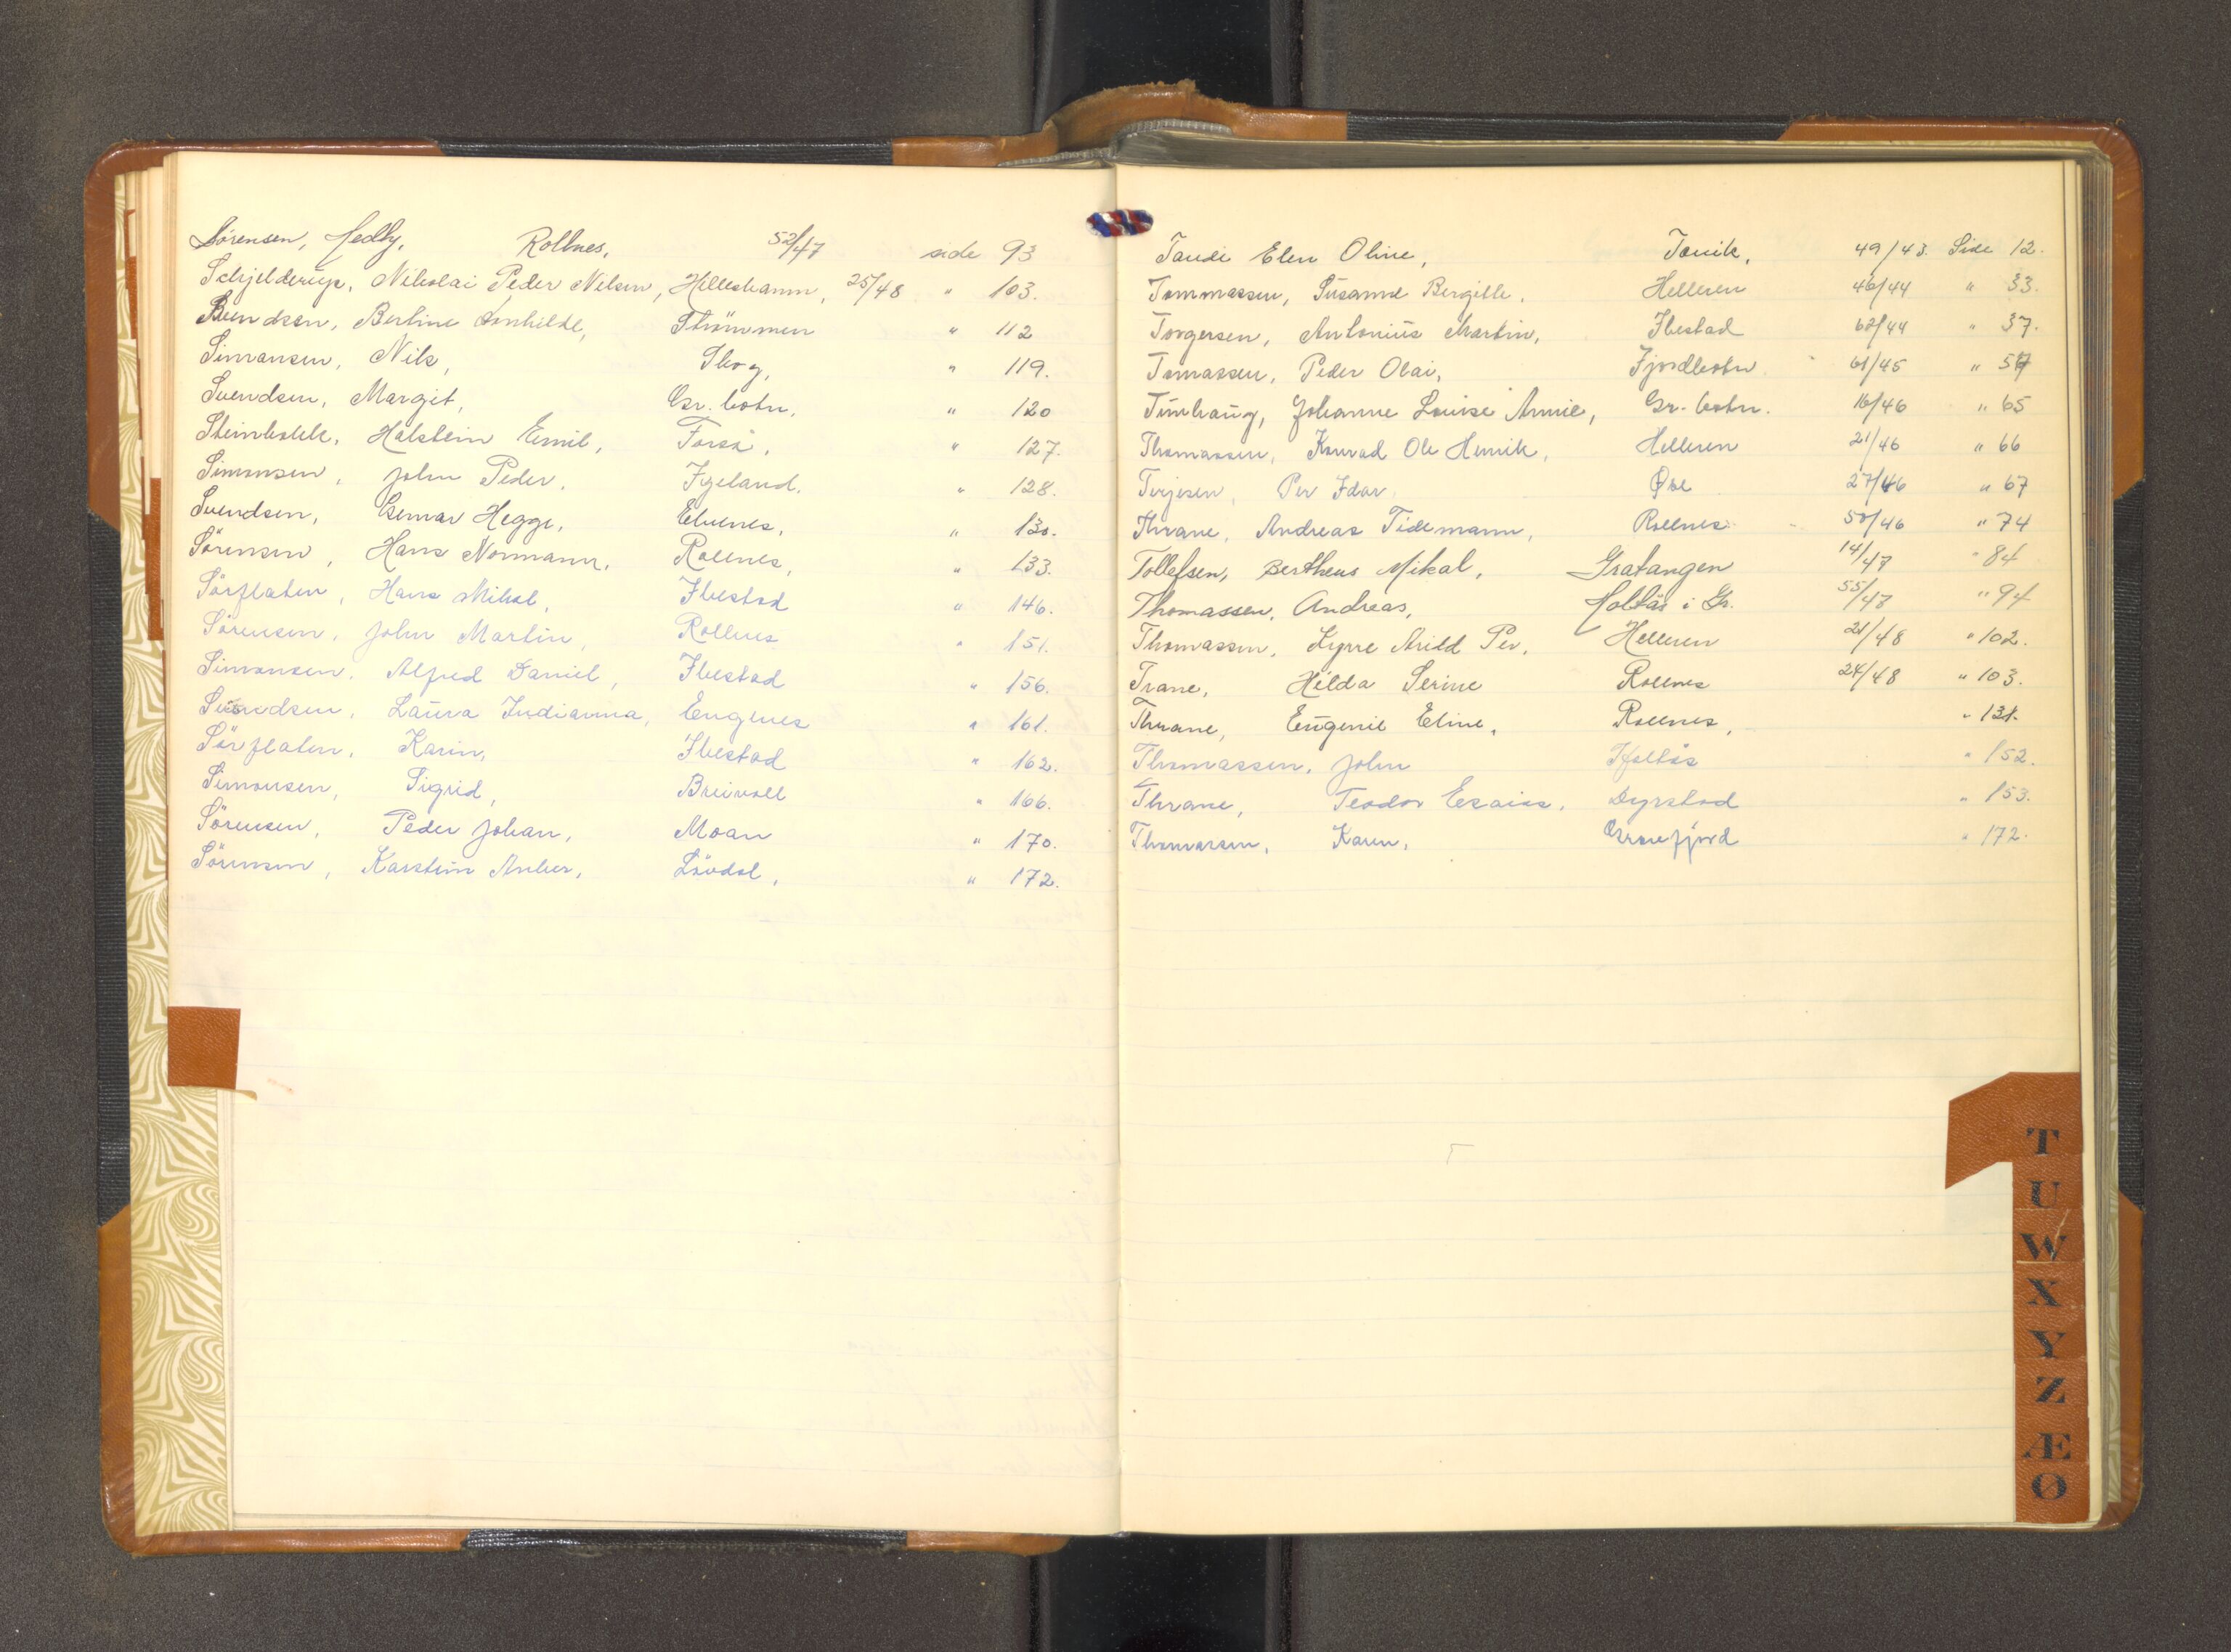 Sörensen, Hedly, Rollnes, 52/47 side 93
Schjelderup, Nikolai Peder Nilsen, Hilleshamn, 25/48 " 103.
Berline Strömmen " 112
Simonsen, Nils, Skog, " 119.
Svendsen, Margit, Gr.botn, " 120
Halstein Emil, Forså, " 127.
Simonsen, John Peder, " 128.
Svendsen, Hegge, Elvenes, " 130.
Sörensen, Hans Normann, Rollnes, " 133.
Sörflaten, Hans Mikal, Ibestad " 146.
Sörensen, John Martin, Rollnes " 151.
Simonsen, Alfred Daniel, Ibestad " 156.
Laura Indianna, Engenes " 161.
Sörflaten, Karin, Ibestad " 162.
Simonsen, Sigrid, Breivoll " 166.
Sörensen, Peder Johan, Moan " 170.
Sörensen, Karstein Lövdal, " 172.
Elen Oline, 49/43. Side 12.
Tommassen, Susanne Bergitte, Helleren 46/44 " 33.
Torgersen, Antonius Martin, Ibestad 62/44 " 37.
Tomassen, Peder Olai, Fjordbotn 61/45 " 57
Johanne Louise Annie, Gr.botn. 16/46 " 65
Thomassen, Konrad Ole Henrik, Helleren 21/46 " 66
Terjesen, Per Idar, Øse 27/46 " 67
Thrane, Andreas Tidemann, Rollnes 50/46 " 74
Tollefsen, Bertheus Mikal, Gratangen 14/47 " 84
Thomassen, Andreas, Holtås i Gr. 55/47 " 94
Thomassen, Arild Per, Helleren 21/48 " 102.
Trane, Hilda Serine Rollnes 24/48 " 103.
Thrane, Eugenie Eline, Rollnes, " 131.
Thomassen, John Holtås " 152.
Thrane, Teodor Esaias, Dyrstad " 153.
Thomassen, Karen, " 172.
T
U
W
X
Y
Z
Æ
Ø